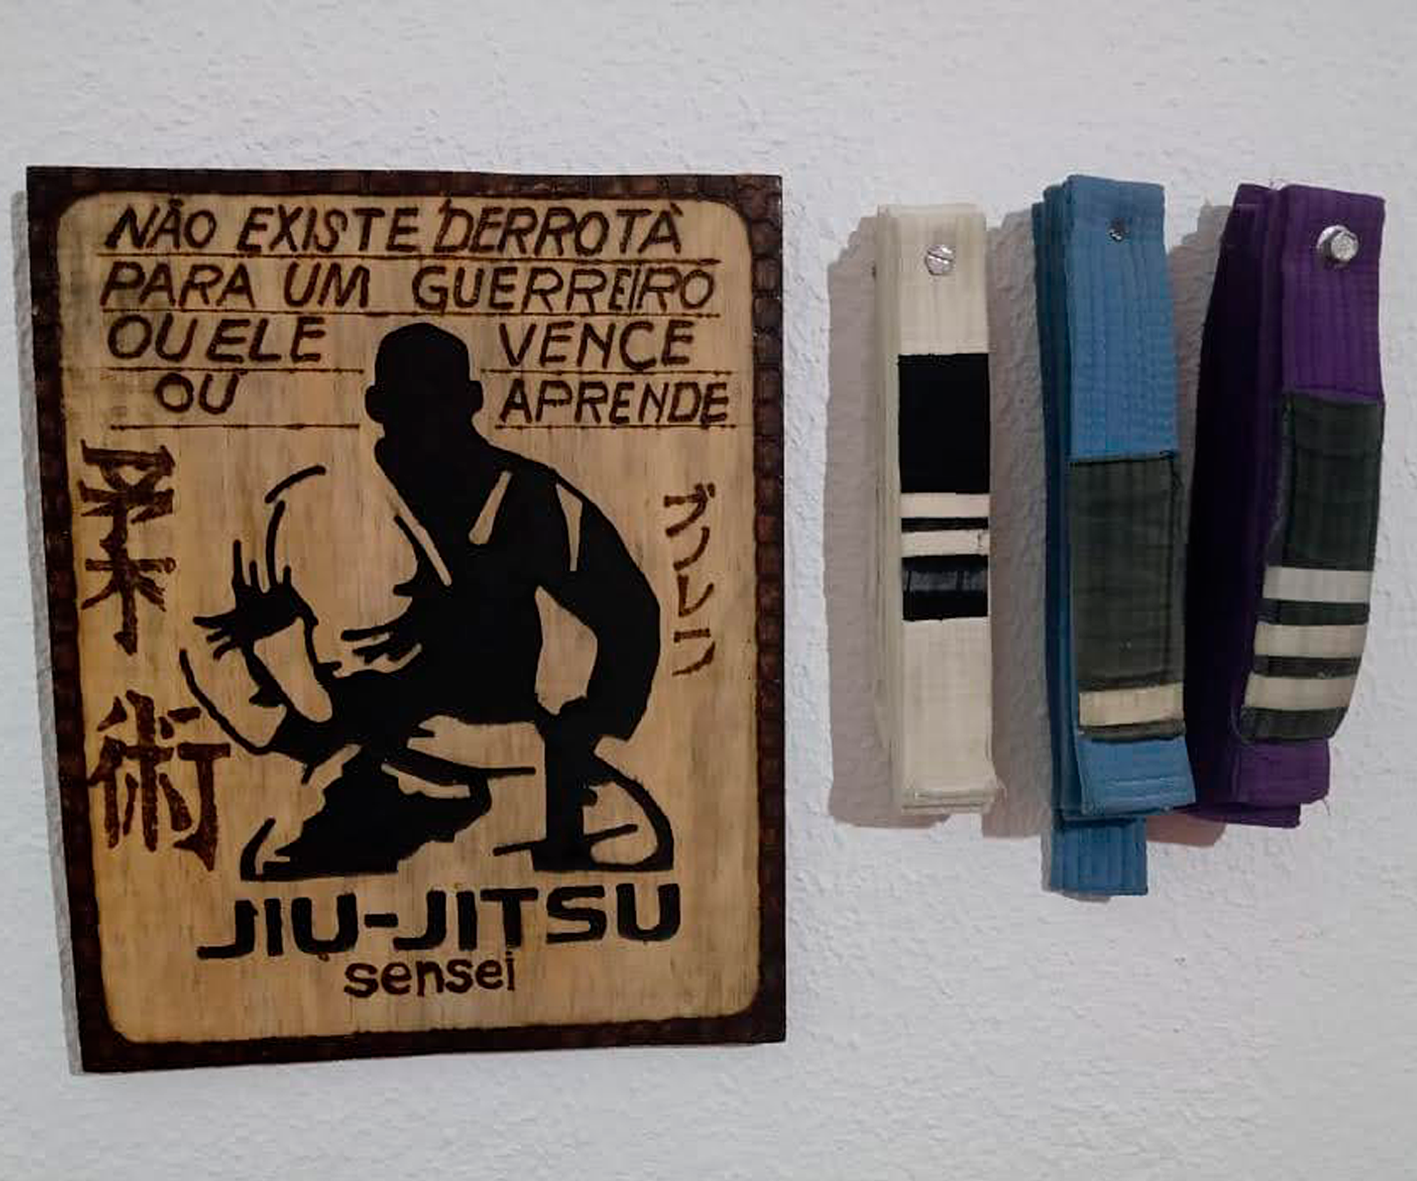 NÃO EXISTE DERROTA
PARA UM GUERREIRO
OU ELE VENCE
OU APRENDE
柔術
ブレン
JIU-JITSU
sensei